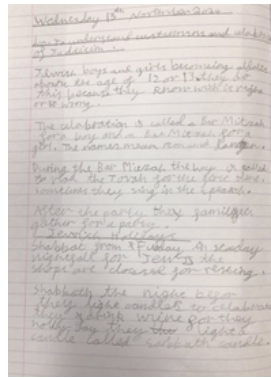 Wednesday 13th November 2024
to understand customs and celabrations
of Judaism.
Jewish boys and girls becoming adults
above the age of 12 or 13. they do
this because they know with is right
or is wrong.
The celabration is called a Bar Mitzah
for a boy and a Bat Mitzah for a
girl. The names mean
During the Bar Mitzah the boy is called
to read the Torah for the first time.
sometimes they sing in the speach.
After the party they familys
gather for a party.
Jewish Holidays
Shabbat from Friday
nightfall for Jews is the
shops are closed for
Shabbath the night befor
they light candels to celabrate
they drink wine for they
holy day they light a
candle called sabbath candle.